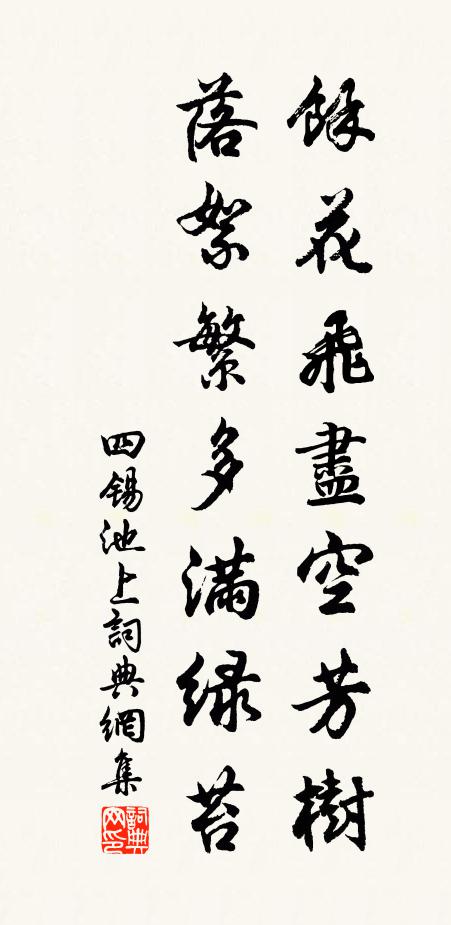 餘花飛盡空芳樹
落絮繁多满緑苔
四錫池上詞典網集
詞典网印